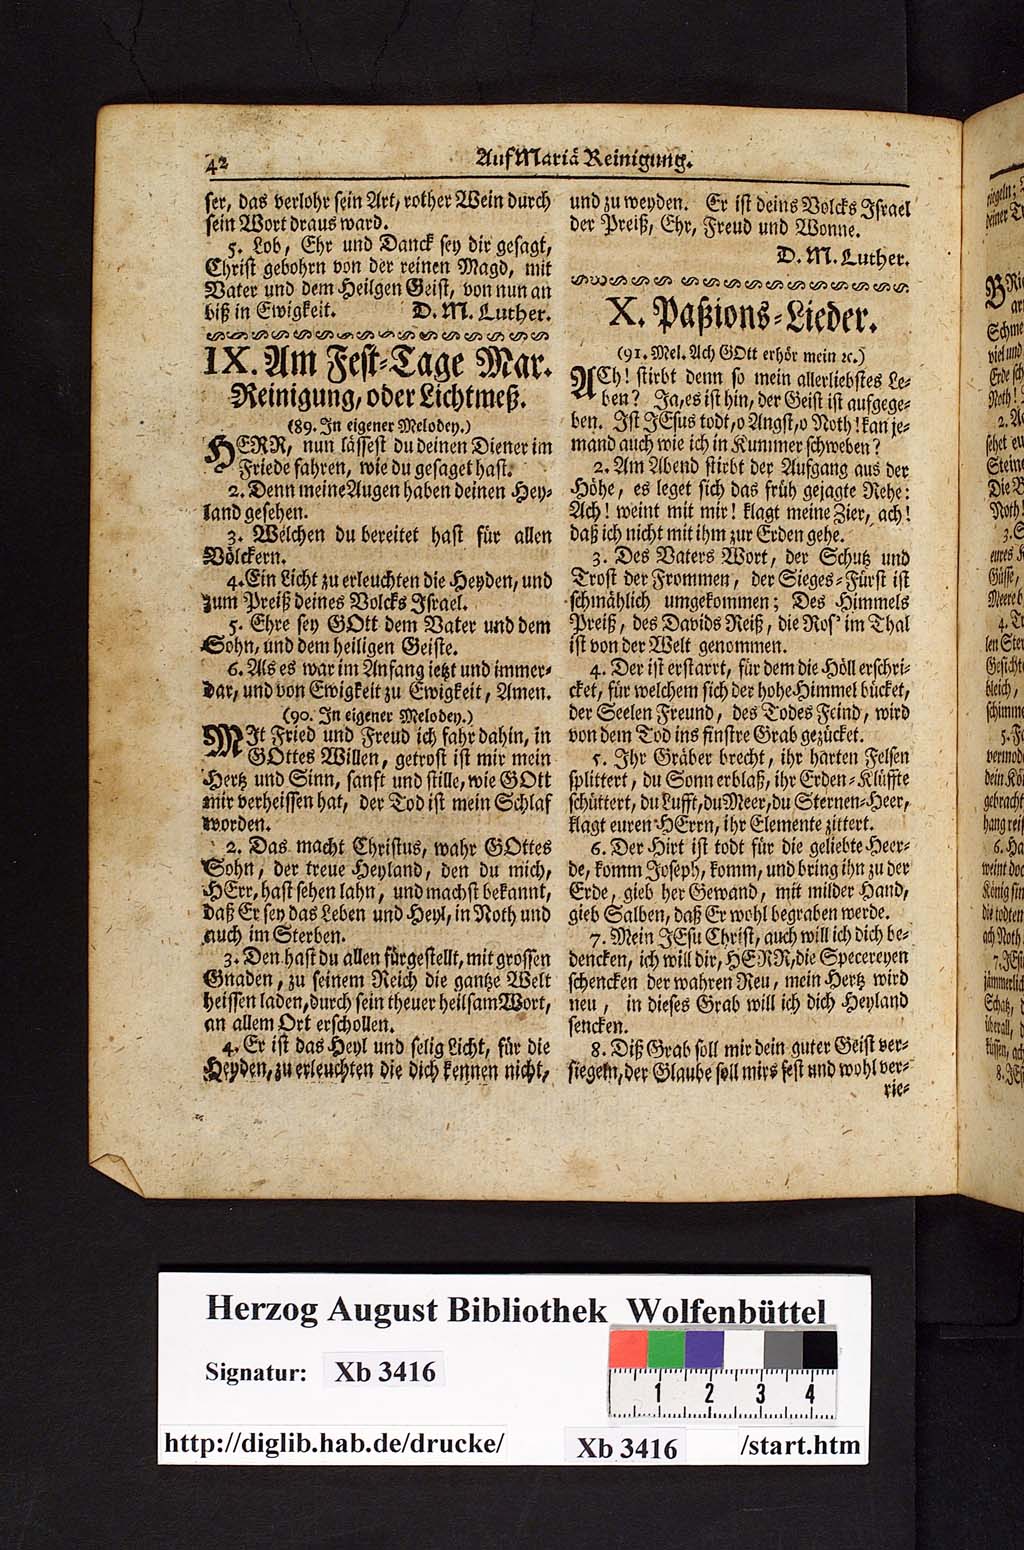 42
Auf Mariä Reinigung.
ser, das verlohr sein Art, rother Wein durch
sein Wort draus ward.
5. Lob, Ehr und Danck sey dir gesagt,
Christ gebohrn von der reinen Magd, mit
Vater und dem Heilgen Geist, von nun an
biß in Ewigkeit. D. M. Luther.
IX. Am Fest-Tage Mar.
Reinigung, oder Lichtmeß.
(89. In eigener Melodey.)
HERR, nun lässest du deinen Diener im
Friede fahren, wie du gesaget hast.
2. Denn meine Augen haben deinen Hey-
land gesehen.
3. Welchen du bereitet hast für allen
Völckern.
4. Ein Licht zu erleuchten die Heyden, und
zum Preiß deines Volcks Israel.
5. Ehre sey GOtt dem Vater und dem
Sohn, und dem heiligen Geiste.
6. Als es war im Anfang ietzt und immer-
dar, und von Ewigkeit zu Ewigkeit, Amen.
(90. In eigener Melodey.)
MIt Fried und Freud ich fahr dahin, in
GOttes Willen, getrost ist mir mein
Hertz und Sinn, sanft und stille, wie GOtt
mir verheissen hat, der Tod ist mein Schlaf
worden.
2. Das macht Christus, wahr GOttes
Sohn, der treue Heyland, den du mich,
HErr, hast sehen lahn, und machst bekannt,
daß Er sey das Leben und Heyl, in Noth und
auch im Sterben.
3. Den hast du allen fürgestellt, mit grossen
Gnaden, zu seinem Reich die gantze Welt
heissen laden, durch sein theuer heilsam Wort,
an allem Ort erschollen.
4. Er ist das Heyl und selig Licht, für die
Heyden, zu erleuchten die dich kennen nicht,
und zu weyden. Er ist deins Volcks Israel
der Preiß, Ehr, Freud und Wonne.
D. M. Luther.
X. Paßions-Lieder.
(91. Mel. Ach GOtt erhör mein ꝛc.)
ACh! stirbt denn so mein allerliebstes Le-
ben? Ja, es ist hin, der Geist ist aufgege-
ben. Ist JEsus todt, o Angst, o Noth! kan je-
mand auch wie ich in Kummer schweben?
2. Am Abend stirbt der Aufgang aus der
Höhe, es leget sich das früh gejagte Rehe:
Ach! weint mit mir! klagt meine Zier, ach!
daß ich nicht mit ihm zur Erden gehe.
3. Des Vaters Wort, der Schutz und
Trost der Frommen, der Sieges-Fürst ist
schmählich umgekommen; Des Himmels
Preiß, des Davids Reiß, die Ros' im Thal
ist von der Welt genommen.
4. Der ist erstarrt, für dem die Höll erschri-
cket, für welchem sich der hohe Himmel bücket,
der Seelen Freund, des Todes Feind, wird
von dem Tod ins finstre Grab gezücket.
5. Ihr Gräber brecht, ihr harten Felsen
splittert, du Sonn erblaß, ihr Erden-Klüffte
schüttert, du Lufft, du Meer, du Sternen-Heer,
klagt euren HErrn, ihr Elemente zittert.
6. Der Hirt ist todt für die geliebte Heer-
de, komm Joseph, komm, und bring ihn zu der
Erde, gieb her Gewand, mit milder Hand,
gieb Salben, daß Er wohl begraben werde.
7. Mein JEsu Christ, auch will ich dich be-
dencken, ich will dir, HERR, die Specereyen
schencken der wahren Reu, mein Hertz wird
neu, in dieses Grab will ich dich Heyland
sencken.
8. Diß Grab soll mir dein guter Geist ver-
siegeln, der Glaube soll mirs fest und wohl ver-
rie-
Herzog August Bibliothek Wolfenbüttel
Signatur: Xb 3416
1 2 3 4
http://diglib.hab.de/drucke/ Xb 3416 /start.htm